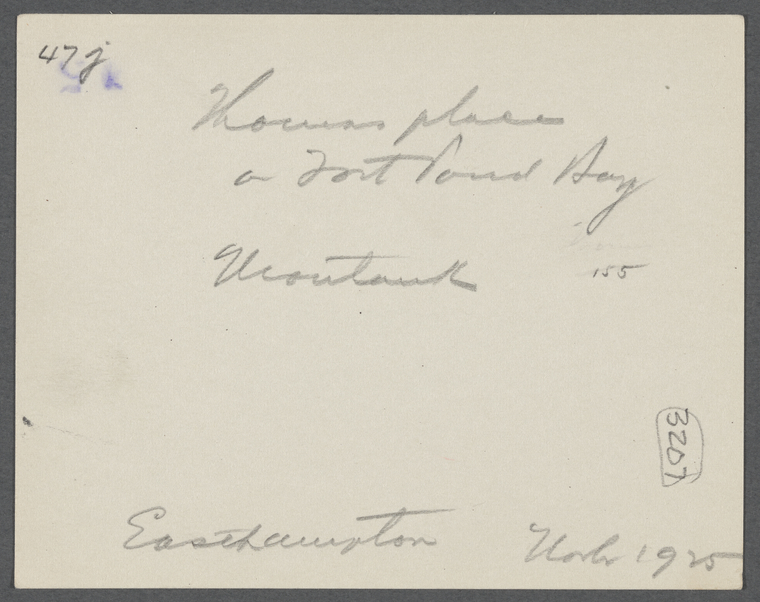 47j
place
a Fort Pond Bay
Montauk
155
3207
Easthampton 1925